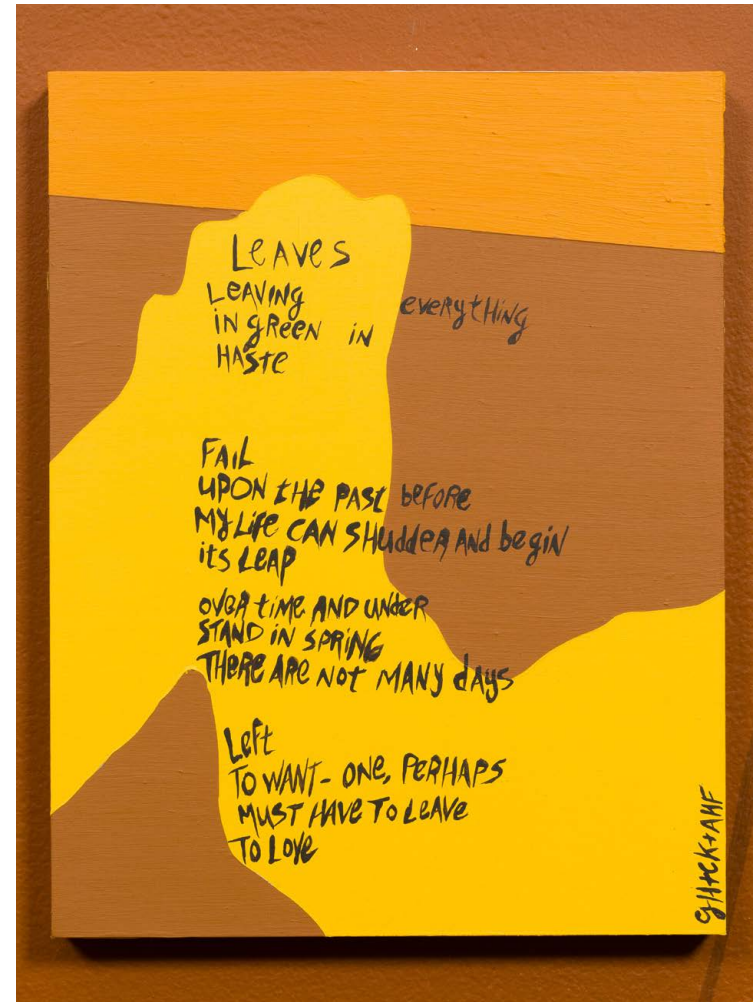 Leaves
LEAVING everytHiNg
iN gReeN iN
HAste
FAiL
UPON tHe PASt beFORe
MY LiFe CAN SHuddeR ANd begiN
its LeAP
oveR tiMe AND UNdeR
STAND iN SPRiNG
THeRe ARe Not MANY dAys
Left
TO WANT - ONe, PeRHAPS
MUST HAVe To LeAve
To LOVe